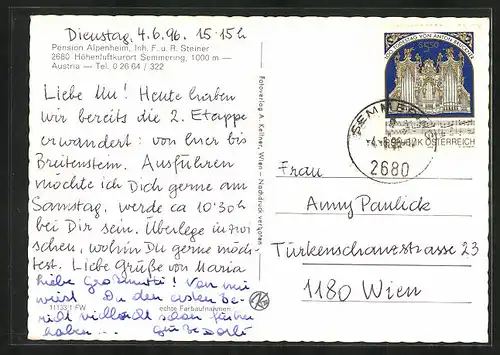 Dienstag, 4.6.96. 15.15h
Pension Alpenheim, Inh. F. u. R. Steiner
2680 Höhenluftkurort Semmering, 1000 m —
Austria — Tel. 0 26 64 / 322
Liebe Mu! Heute haben
wir bereits die 2. Etappe
erwandert: von hier bis
Breitenstein. Ausführen
möchte ich Dich gerne am
Samstag, werde ca 10.30h
bei Dir sein. Überlege inzwi
schen, wohin Du gerne möch-
test. Liebe Grüße von Maria
Liebe Großmutti! Von mir
wirst Du den ersten Be
richt vielleicht schon früher
haben...
11133/1 FW
echte Farbaufnahmen
Fotoverlag A. Kellner, Wien — Nachdruck verboten
100. TODESTAG VON ANTON BRUCKNER
S5.50
REPUBLIK ÖSTERREICH
SEMMERING
2680
Frau
Anny Paulick
Türkenschanzstrasse 23
1180 Wien